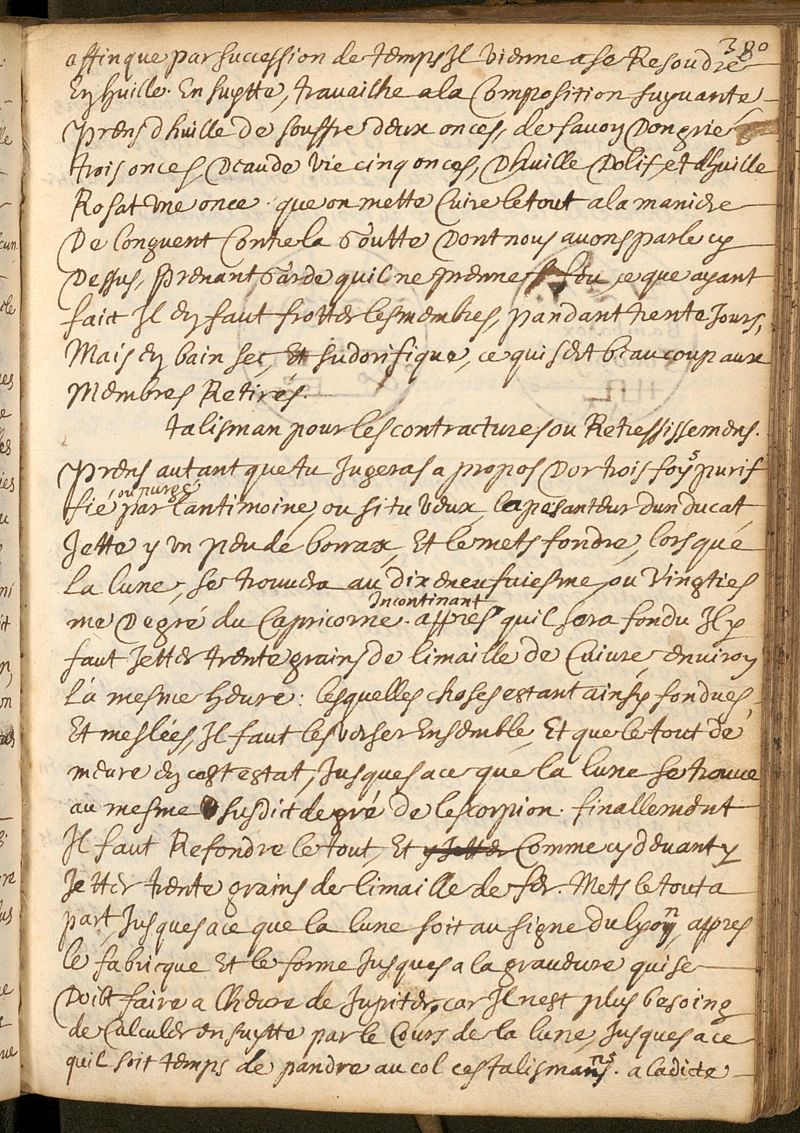 380
affinque par succession de temps Il vienne a se Resoudre
En huille. En suytte, travailhe a la Composition suyvante
Prens d'huille de souffre deux onces, de savon Dongrie
trois onces, Deau de vie cinq onces, D'huille Dolif et d'huille
Rosat une once. que on mette Cuire le tout a la maniere
De longuent Contre la Goutte Dont nous avons parlé cy
Dessus, Prenant Garde quil ne prenne feu, ce que ayant
fait Il en faut frotter les membres, pandant trente Jours,
Mais en bain sec, Et sudorifique, ce qui sert beaucoup aux
Membres Retirés.
talisman pour les contractures ou Retressissemens.
Prens autant que tu Jugeras a propos Dor trois foys puriff
ou purgé
fié par l'antimoine, ou si tu veux, la pesanteur dun ducat
Jette y un peu de borrax, Et le mets fondre, lors que
la lune, se trouvera au dix eneufuiesme, ou vingties
me Degré du Capricorne. Incontinant
appres quil sera fondu Il y
faut Jetter trente grains de limaille de Cuivre environ
La mesme heure: lesquelles choses estant ainsy fondues,
Et meslées, Il faut les verser Ensemble, Et que le tout de
meure en cest estat, Jusques a ce que la lune se trouve
au mesme susdict degré de lescorpion. finallement
Il faut Refondre le tout, Et y Jetter Comme cy devant y
Jetter trente grains de limaille de fer. Mets le tout a
part, Jusques a ce que la lune soit au signe du lyon, appres
le fabricque Et le forme Jusques a la graudure qui se
Doibt faire a lheure de Jupiter, car Il nest plus besoing
de Calculer en suytte par le Cours de la lune, Jusques a ce
quil soit temps de pandre au col ces talismans. a ladicte